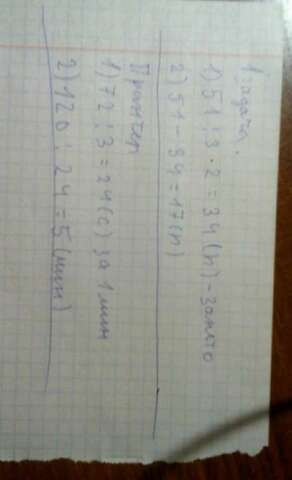 1 задача.
1) 51 : 3 · 2 = 34 (н) - занято
2) 51 - 34 = 17 (н)
Принтер
1) 72 : 3 = 24 (с) за 1 мин
2) 120 : 24 = 5 (мин)